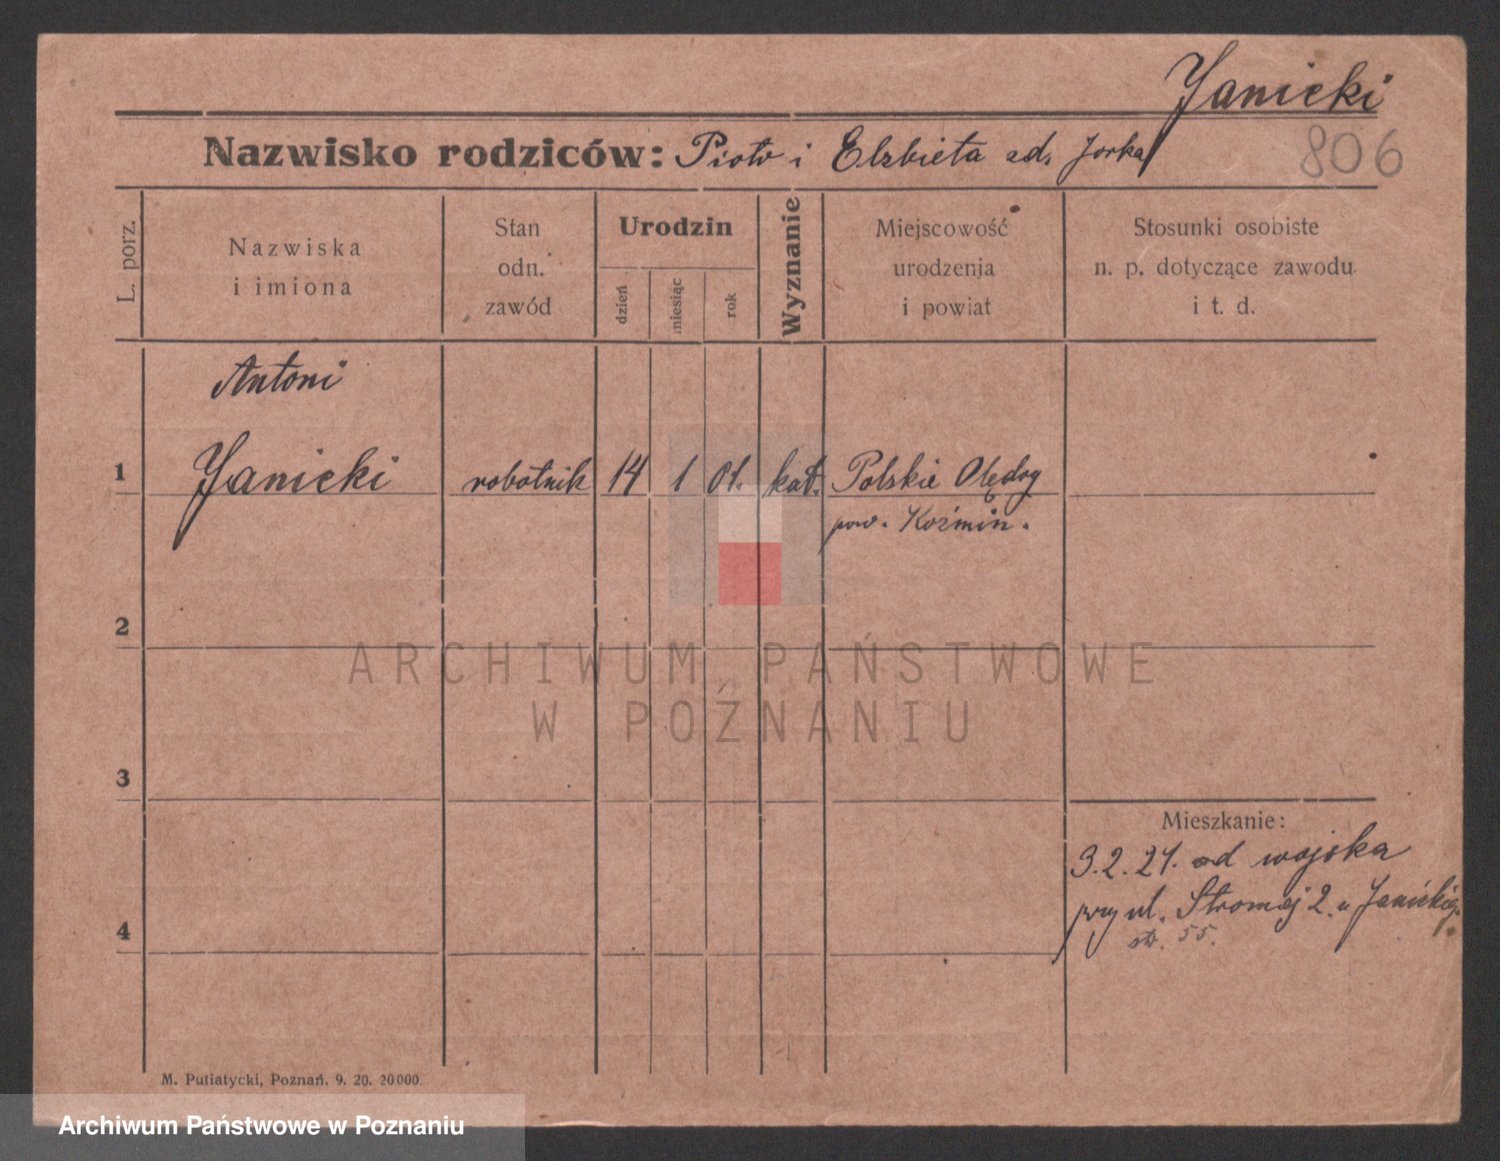 Janicki
806
Nazwisko rodziców: Piotr i Elzbieta zd. Jorka
L. porz.
Nazwiska
i imiona
Stan
odn.
zawód
Urodzin
dzień
miesiąc
rok
Wyznanie
Miejscowość
urodzenia
i powiat
Stosunki osobiste
n. p. dotyczące zawodu
i t. d.
Antoni
1 Janicki robotnik 14 1 01. kat. Polskie Olędry
pow. Koźmin.
2
ARCHIWUM PAŃSTWOWE
W POZNANIU
3
Mieszkanie:
3.2.21. od wojska
przy ul. Stromej 2. u Janickieg.
4
str. 55.
M. Putiatycki, Poznań. 9. 20. 20000.
Archiwum Państwowe w Poznaniu